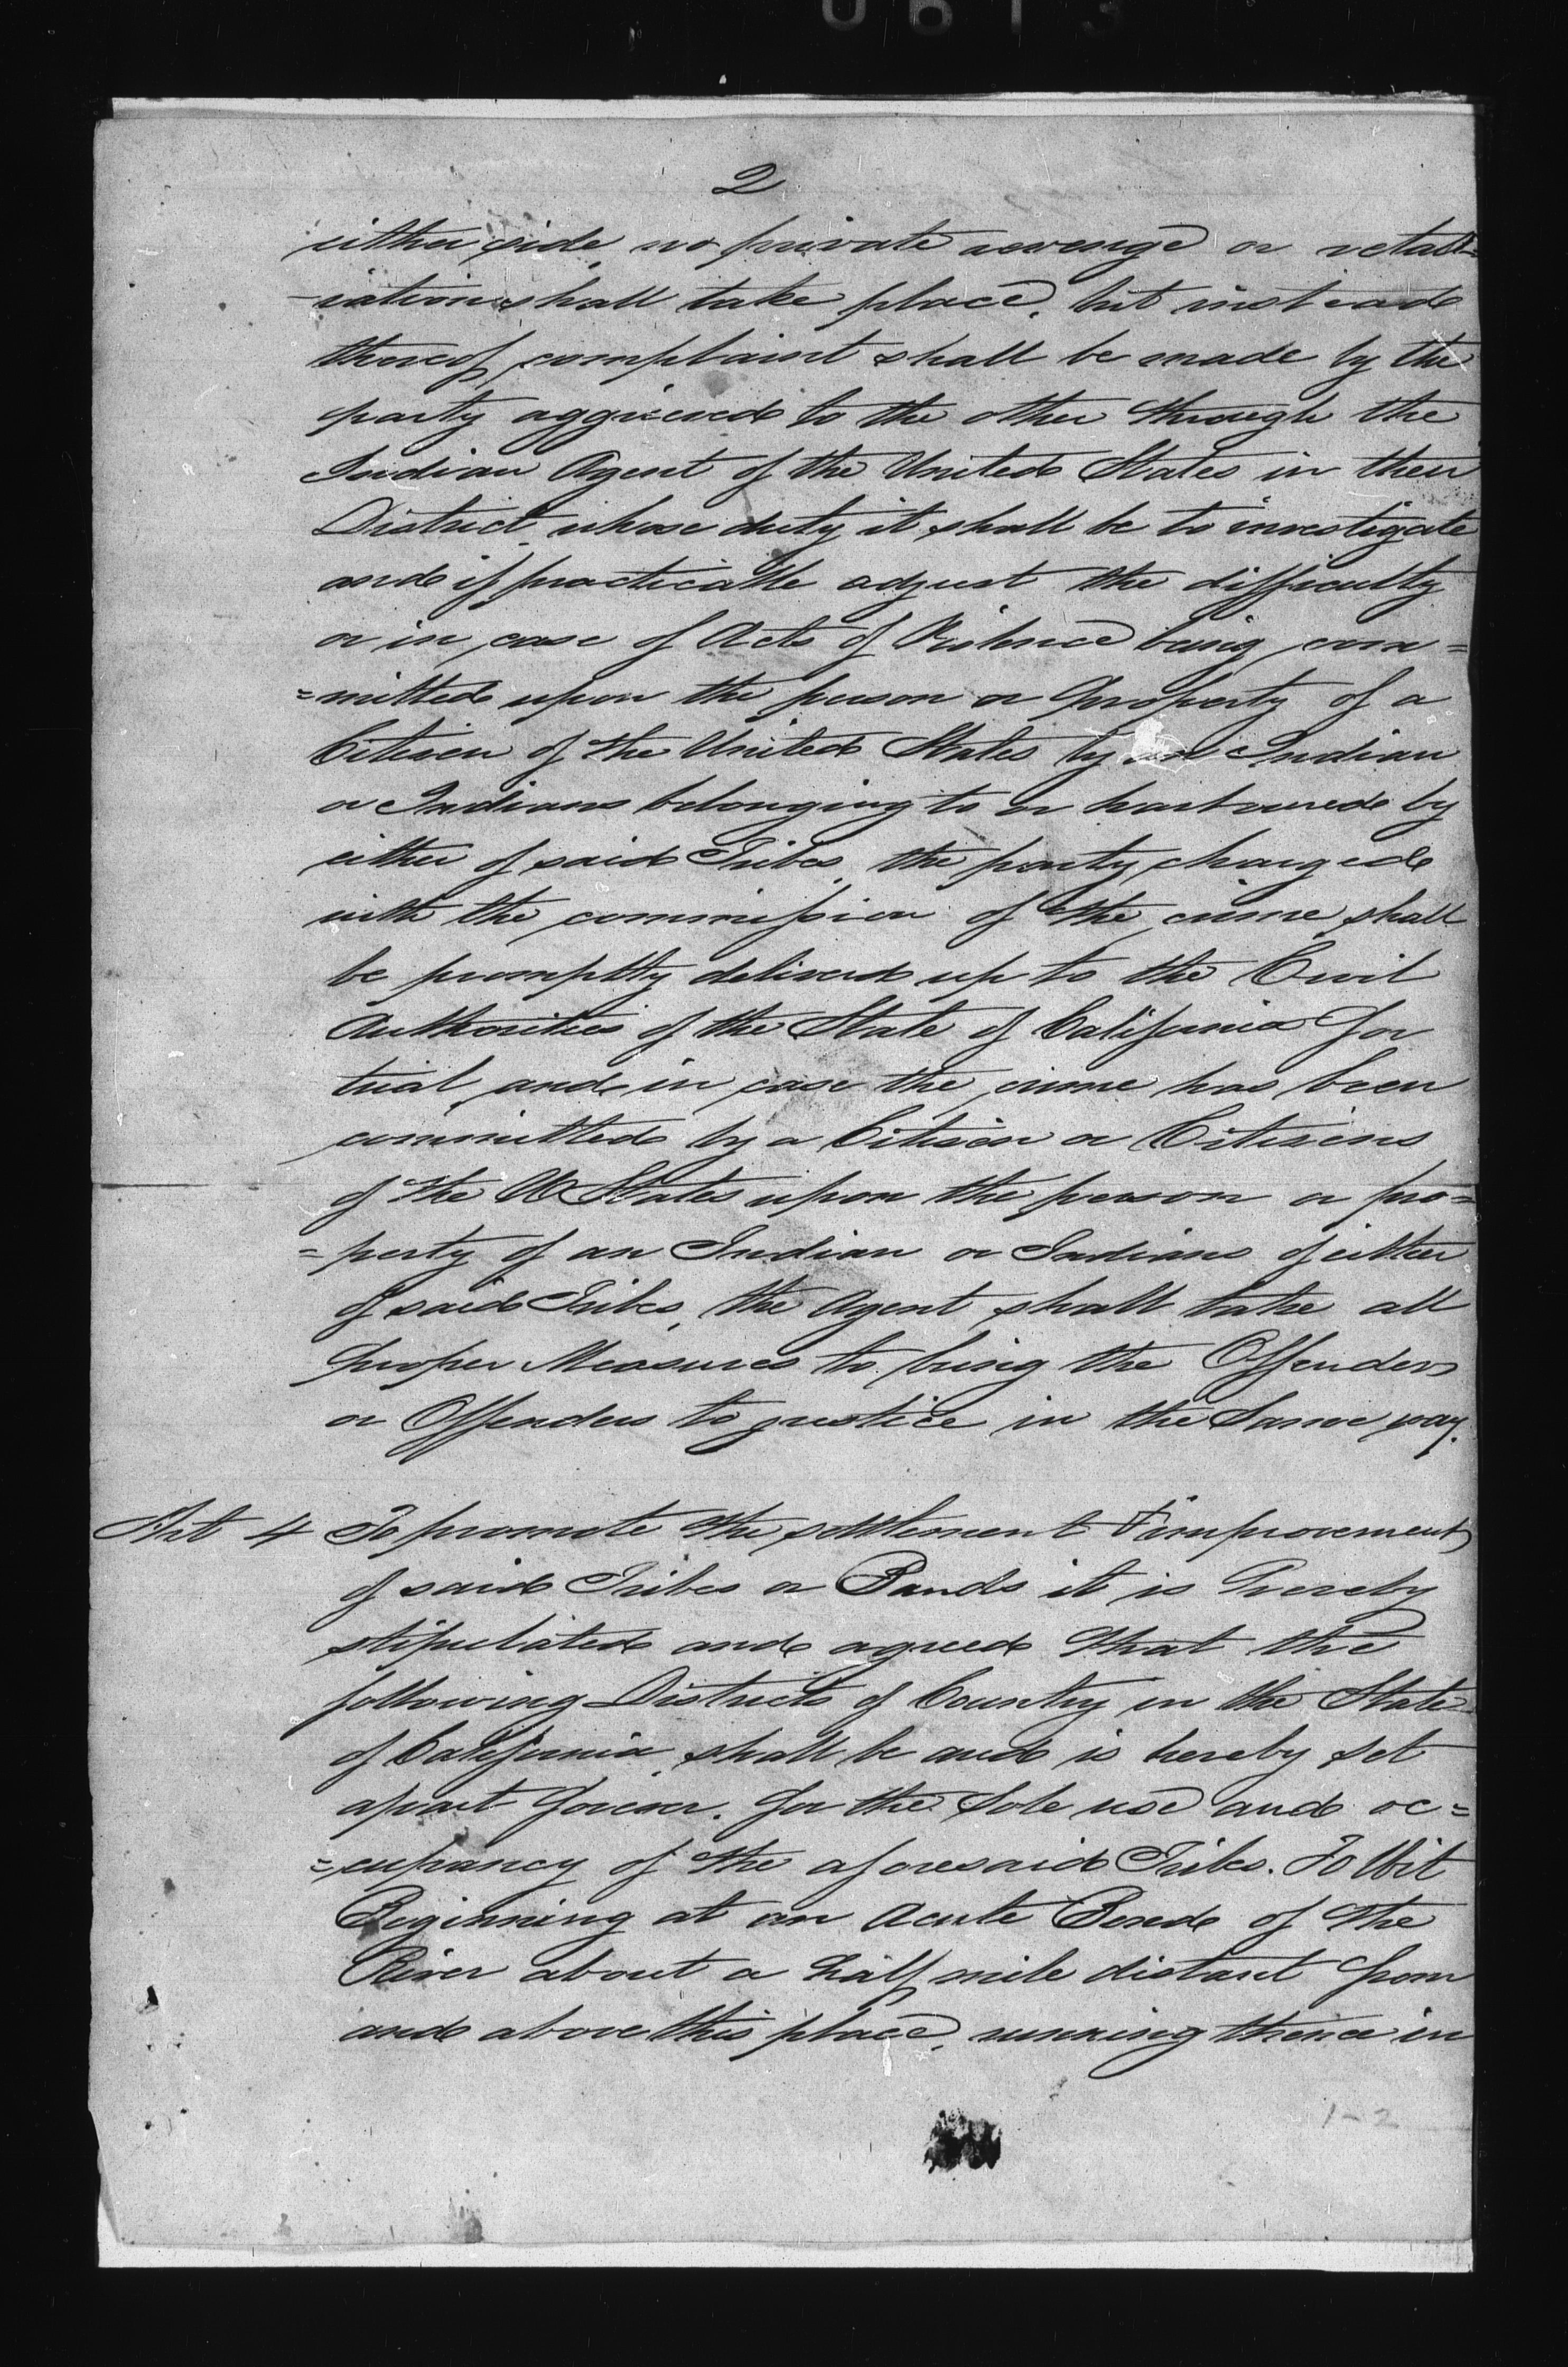 2
either side, no private revenge or retali=
-iation shall take place, but instead
thereof, complaint shall be made by the
party aggrieved to the other through the
Indian Agent of the United States in their
District, whose duty it shall be to investigate
and if practicable adjust the difficulty
or in case of Acts of Violence being com=
=mitted upon the person or Property of a
Citizen of the United States by an Indian
or Indians belonging to or harboured by
either of said Tribes, the party charged
with the commission of the crime shall
be promptly delivered up to the Civil
Authorities of the State of California for
trial, and in case the crime has been
committed by a Citizen or Citizens
of the U States upon the person or pro=
=perty of an Indian or Indians of either
of said Tribes, the Agent shall take all
proper Measures to bring the Offender
or Offenders to justice in the Same way.
Art 4 To promote the settlement & improvement
of said Tribes or Bands it is hereby
stipulated and agreed that the
following Districts of Country in the State
of California, shall be and is hereby set
apart forever. for the Sole use and oc=
=cupancy of the aforesaid Tribes. To Wit
Beginning at an Acute Bend of the
River about a half mile distant from
and above this place, running thence in
1-2